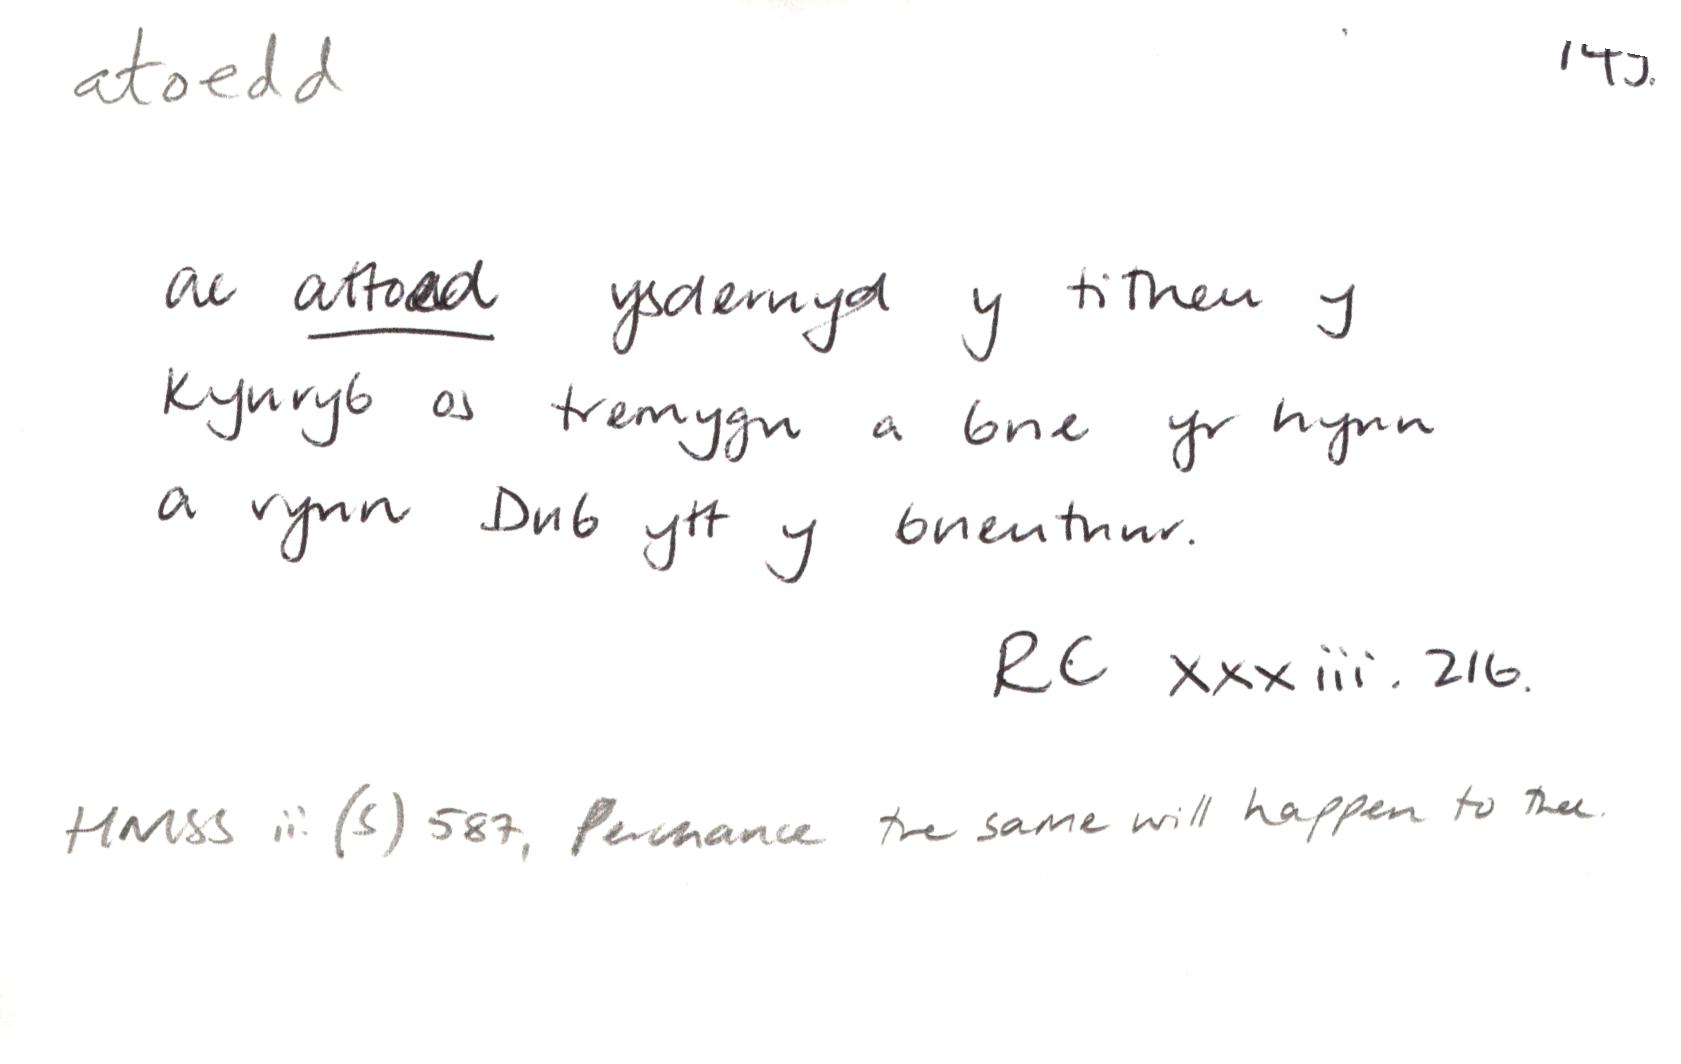 atoedd 14g.
ac attoed ysdernyd y titheu y
kynryб os tremygu a бne yr hynn
a vynn Duб ytt y бneuthur.
RC xxxiii. 216.
HMSS ii (S) 587, Perchance the same will happen to thee.